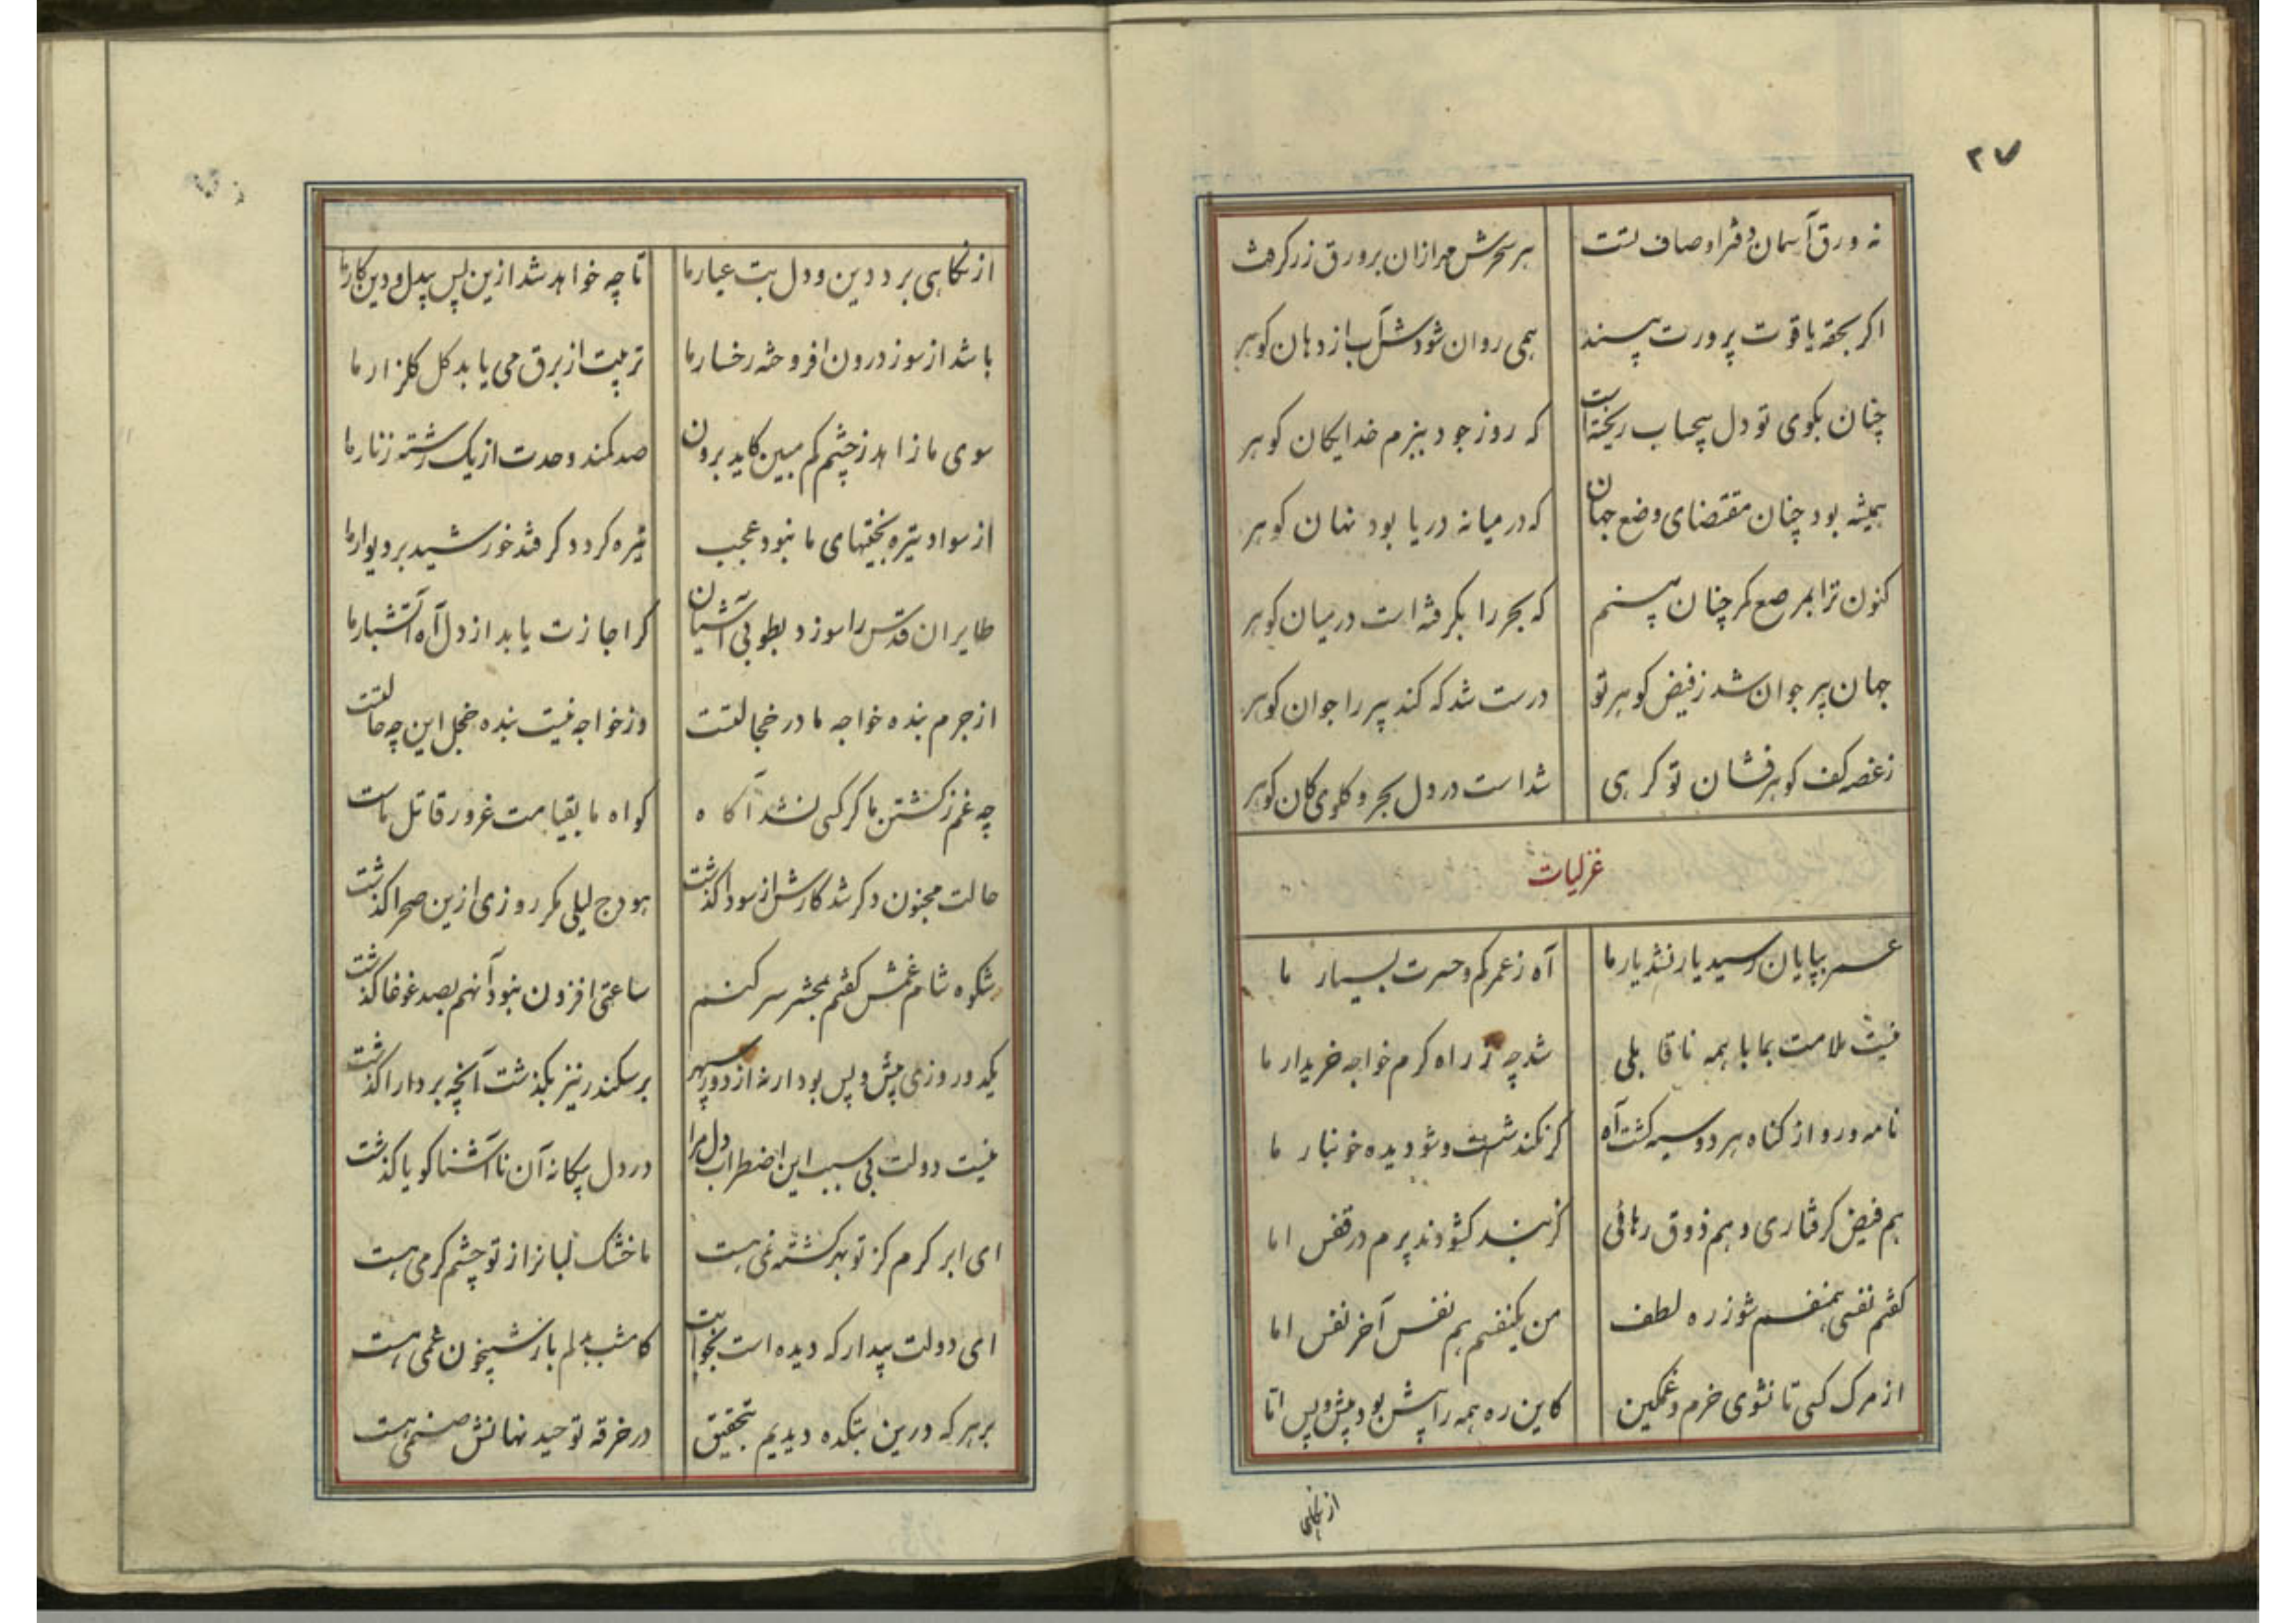 ۲۷
نه ورق آسمان دفتر اوصاف تست هر سحرش مهر ازان بر ورق زر گرفت
اگر بحقه یاقوت پرورت بیند همی روان شودش آب از دهان گوهر
چنان بکوی تو دل بیحساب ریخته است که روز جود ببزم خدایگان گوهر
همیشه بود چنان مقتضای وضع جهان که در میانه دریا بود نهان گوهر
کنون ترا بمرصع کمر چنان بینم که بحر را بگرفته است در میان گوهر
جهان پیر جوان شد ز فیض گوهر تو درست شد که کند پیر را جوان گوهر
ز غصه کف گوهرفشان تو گرهی شد است در دل بحر و گلوی کان گوهر
غزلیات
عمر بپایان رسید یار نشد یار ما آه ز عمر کم و حسرت بسیار ما
نیست ملامت بما با همه ناقابلی شد چه ز راه کرم خواجه خریدار ما
نامه و رو از گناه هر دو سیه گشت آه گر نکند شست و شو دیده خونبار ما
هم فیض گرفتاری و هم ذوق رهائی گر بند گشودند پرم در قفس اما
گفتم نفسی همنفسم شو ز ره لطف من یکنفسم هم نفس آخر نفس اما
از مرگ کسی تا نشوی خرم و غمگین کاین ره همه را پیش بود پیش و پس اما
از نگاهی
از نگاهی برد دین و دل بت عیار ما تا چه خواهد شد ازین پس بیدل و دین کار ما
باشد از سوز درون افروخته رخسار ما تربیت از برق می یابد گل گلزار ما
سوی ما زاهد ز چشم کم مبین کاید برون صد کمند وحدت از یک رشته زنار ما
از سواد تیره بختیهای ما نبود عجب تیره گردد گر فتد خورشید بر دیوار ما
طایران قدس را سوزد بطوبی آشیان گر اجازت یابد از دل آه آتشبار ما
از جرم بنده خواجه ما در خجالتست وز خواجه نیست بنده خجل این چه حالتست
چه غم ز کشتن ما گر کسی نشد آگاه گواه ما بقیامت غرور قاتل ماست
حالت مجنون دگر شد کارش از سودا گذشت هودج لیلی مگر روزی ازین صحرا گذشت
شکوه شام غمش گفتم بمحشر سر کنم ساعتی افزون نبود آنهم بصد غوغا گذشت
یکدو روزی پیش و پس بود ارنه از دور سپهر بر سکندر نیز بگذشت آنچه بر دارا گذشت
نیست دولت بی سبب این اضطراب دل مرا در دل بیگانه آن ناآشنا گویا گذشت
ای ابر کرم کز تو بهر کشته نمی هست ما خشک لبانرا ز تو چشم کرمی هست
ای دولت بیدار که دیده است بخوابت کامشب بدلم باز شبیخون غمی هست
بر هر که درین بتکده دیدیم بتحقیق در خرقه توحید نهانش صنمی هست